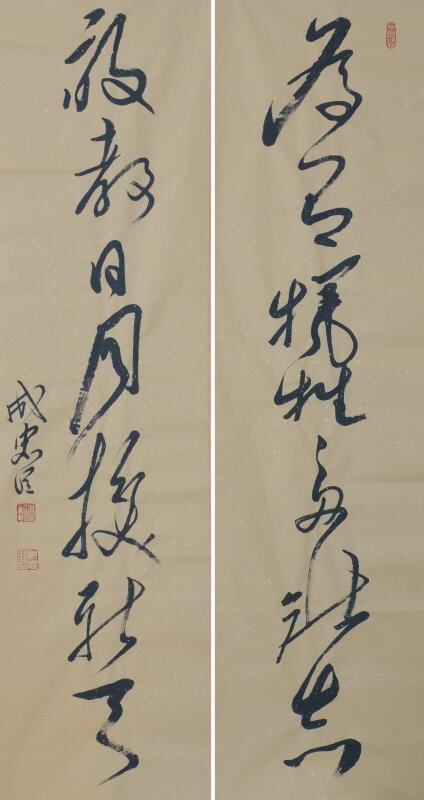 為有犧牲多壯志
敢教日月換新天
成忠臣